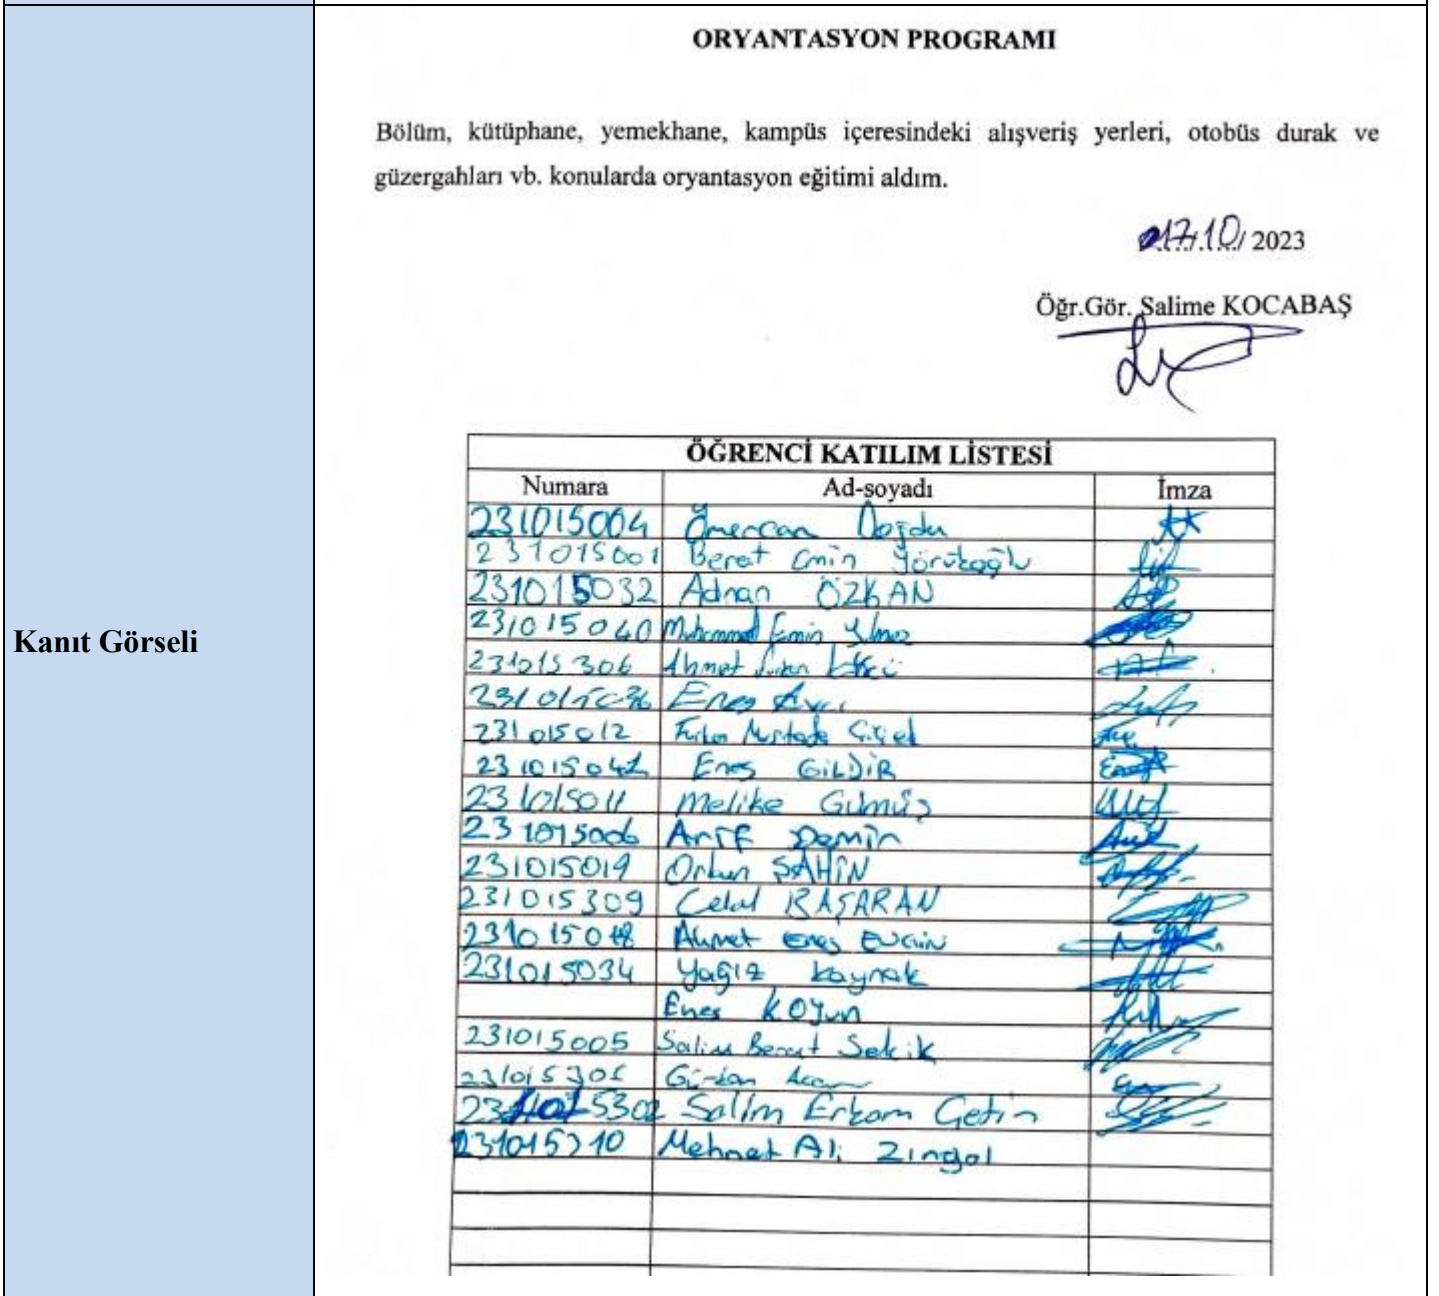 ORYANTASYON PROGRAMI
Bölüm, kütüphane, yemekhane, kampüs içeresindeki alışveriş yerleri, otobüs durak ve
güzergahları vb. konularda oryantasyon eğitimi aldım.
17.10/ 2023
Öğr.Gör. Salime KOCABAŞ
ÖĞRENCİ KATILIM LİSTESİ
Numara Ad-soyadı İmza
231015004 Ömercan Doğdu
231015001 Berat Emin Yörükoğlu
231015032 Adnan ÖZKAN
231015040 Muhammed Emin Yılmaz
231015306 Ahmet
Enes Avcı
231015012 Furkan Mustafa Çiçek
Kanıt Görseli
Enes GİLDİR
231015011 Melike Gümüş
231015006 Arif Demir
231015019 Orkun ŞAHİN
231015309 Celal BAŞARAN
Ahmet Enes
231015034 Yağız Kaynak
Enes KOYUN
231015005 Salim Berat Selcik
Gürkan
Salim Erkam Çetin
231015310 Mehmet Ali Zingal